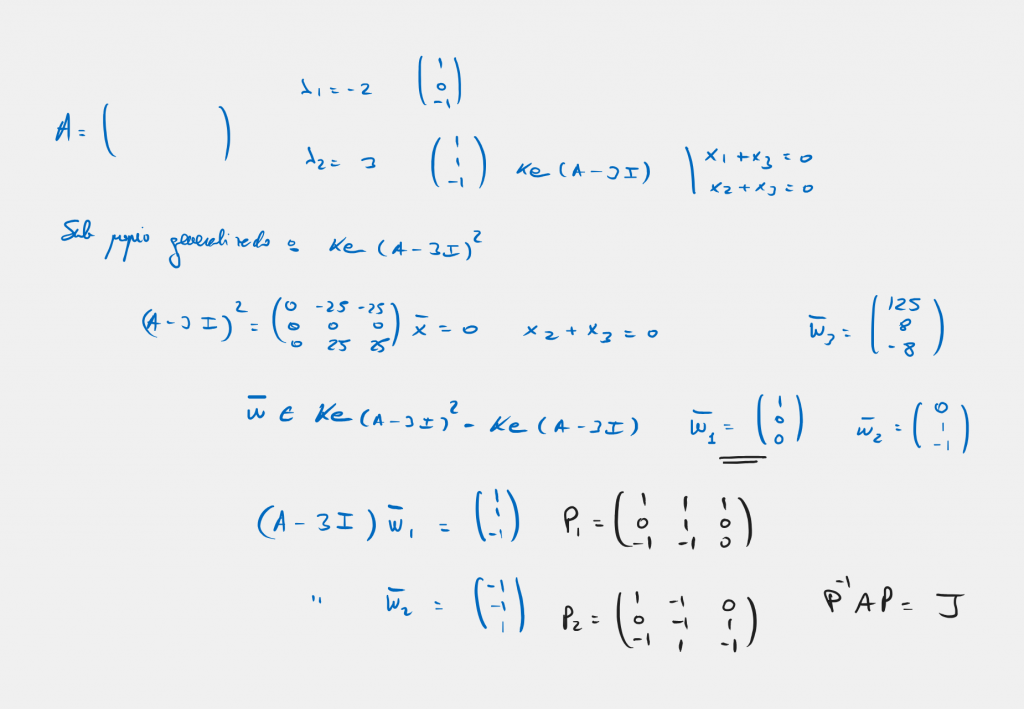 A = ( ) λ₁ = -2 (1 0 -1)
λ₂ = 3 (1 1 -1) Ke (A - 3I) | x₁ + x₃ = 0
x₂ + x₃ = 0
Sub propio generalizado : Ke (A - 3I)²
(A - 3I)² = (0 -25 -25 0 0 0 0 25 25) x̄ = 0 x₂ + x₃ = 0 w̄₃ = (125 8 -8)
w̄ ∈ Ke (A - 3I)² - Ke (A - 3I) w̄₁ = (1 0 0) w̄₂ = (0 1 -1)
(A - 3I) w̄₁ = (1 1 -1) P₁ = (1 1 1 0 1 0 -1 -1 0)
" w̄₂ = (-1 -1 1) P₂ = (1 -1 0 0 -1 1 -1 1 -1) P⁻¹AP = J